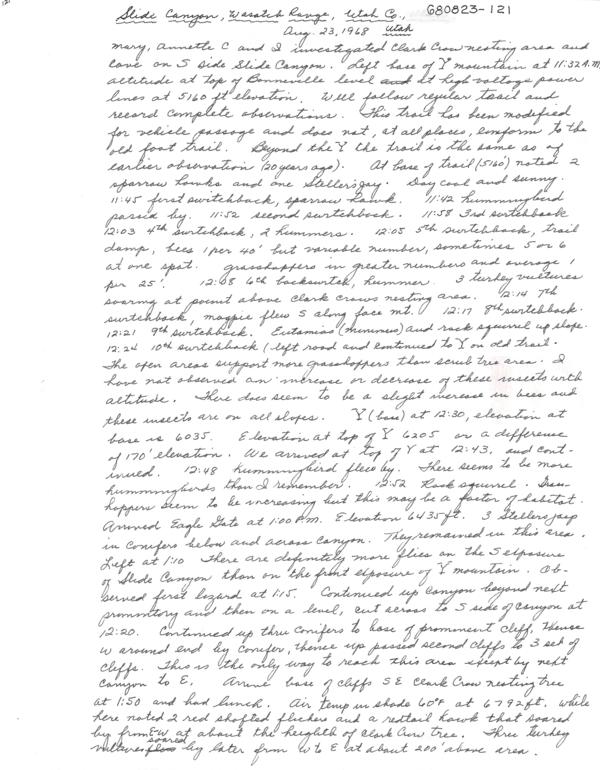 Slide Canyon, Wasatch Range, Utah Co., 680823-121
Aug. 23, 1968 Utah
Mary, Annette C and I investigated Clark Crow nesting area and
cave on S side Slide Canyon. Left base of Y mountain at 11:32 A.M.
altitude at top of Bonneville level and at high voltage power
lines at 5160 ft elevation. Will follow regular trail and
record complete observations. This trail has been modified
for vehicle passage and does not, at all places, conform to the
old foot trail. Beyond the Y the trail is the same as of
earlier observation (20 years ago). At base of trail (5160') noted 2
sparrow hawks and one Steller's jay. Day cool and sunny.
11:45 first switchback, sparrow hawk. 11:42 hummingbird
passed by. 11:52 second switchback. 11:58 3rd switchback
12:03 4th switchback, 2 hummers. 12:05 5th switchback, trail
damp, bees 1 per 40' but variable number, sometimes 5 or 6
at one spot. grasshoppers in greater numbers and average 1
per 25'. 12:08 6th backswitch, hummer. 3 turkey vultures
soaring at point above Clark Crows nesting area. 12:14 7th
switchback, magpie flew S along face mt. 12:17 8th switchback.
12:21 9th switchback. Eutamias (minimus) and rock squirrel up slope.
12:24 10th switchback (left road and continued to Y on old trail.
The open areas support more grasshoppers than scrub tree area. I
have not observed an increase or decrease of these insects with
altitude. There does seem to be a slight increase in bees and
these insects are on all slopes. Y (base) at 12:30, elevation at
base is 6035. Elevation at top of Y 6205 or a difference
of 170' elevation. We arrived at top of Y at 12:43, and cont-
inued. 12:48 hummingbird flew by. There seems to be more
hummingbirds than I remember. 12:52 Rock squirrel.
hoppers seem to be increasing but this may be a factor of habitat.
Arrived Eagle Gate at 1:00 P.M. Elevation 6435 ft. 3 Stellers jays
in conifers below and across canyon. They remained in this area.
Left at 1:10 There are definitely more flies on the S exposure
of Slide Canyon than on the front exposure of Y mountain. Ob-
served first lizard at 1:15. Continued up canyon beyond next
promontory and then on a level, cut across to S side of canyon at
12:20. Continued up thru conifers to base of prominent cliff, thence
W around end by conifer, thence up passed second cliffs to 3 set of
cliffs. This is the only way to reach this area except by next
canyon to E. base of cliffs SE Clark Crow nesting tree
at 1:50 and had lunch. Air temp in shade 60°F at 6792 ft. While
here noted 2 red shafted flickers and a redtail hawk that soared
by from E-W at about the heighth of Clark Crow tree. Three turkey
vultures soared by later from W to E at about 200' above area.